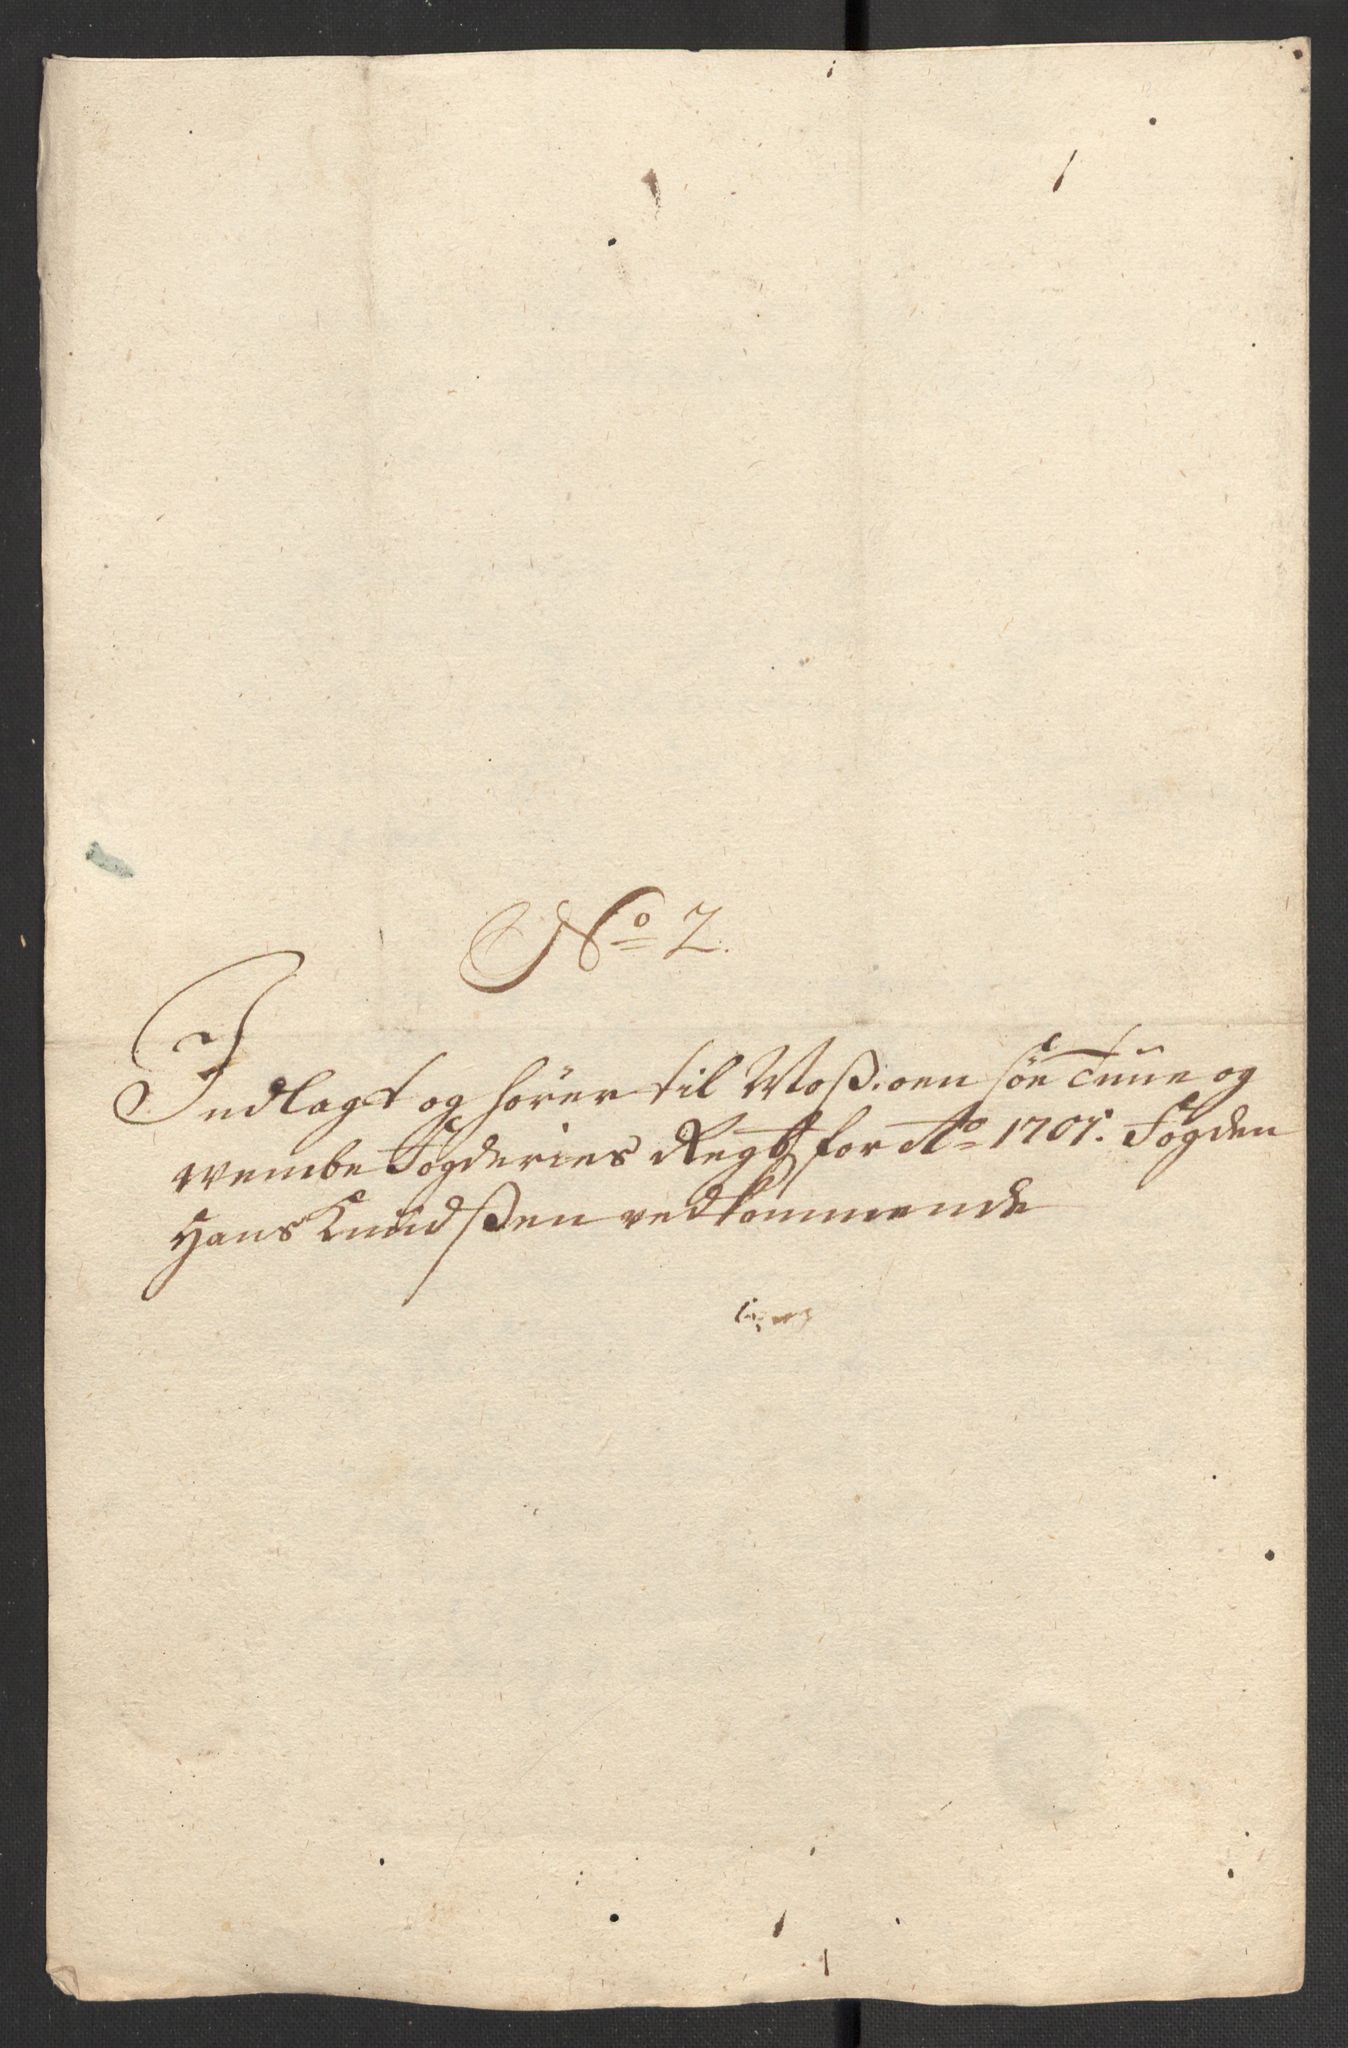 No 2.
Indlagt og hörer til Moß: oen söe Tune og
wembe Fogderies Regsk for Ao 1701. Fogden
Hans Knudßen vedkommende